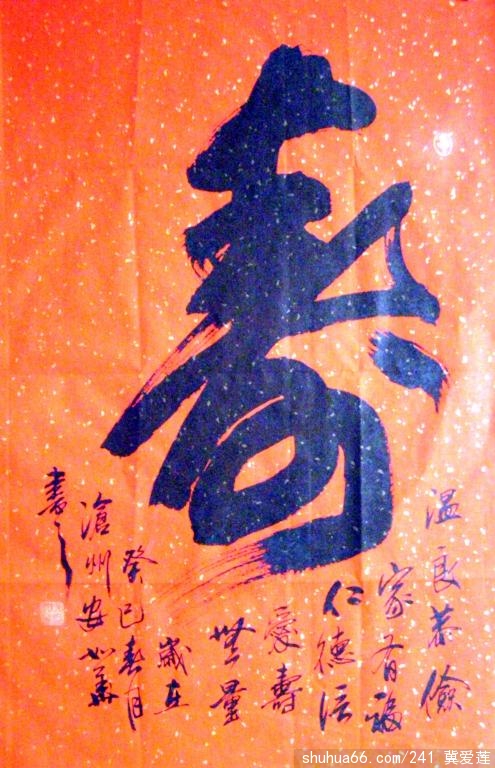 寿
温良恭儉
家有福
仁德信
愛壽
無量
歲在
癸巳春月
滄州安如華
書之
shuhua66.com/241 冀爱莲